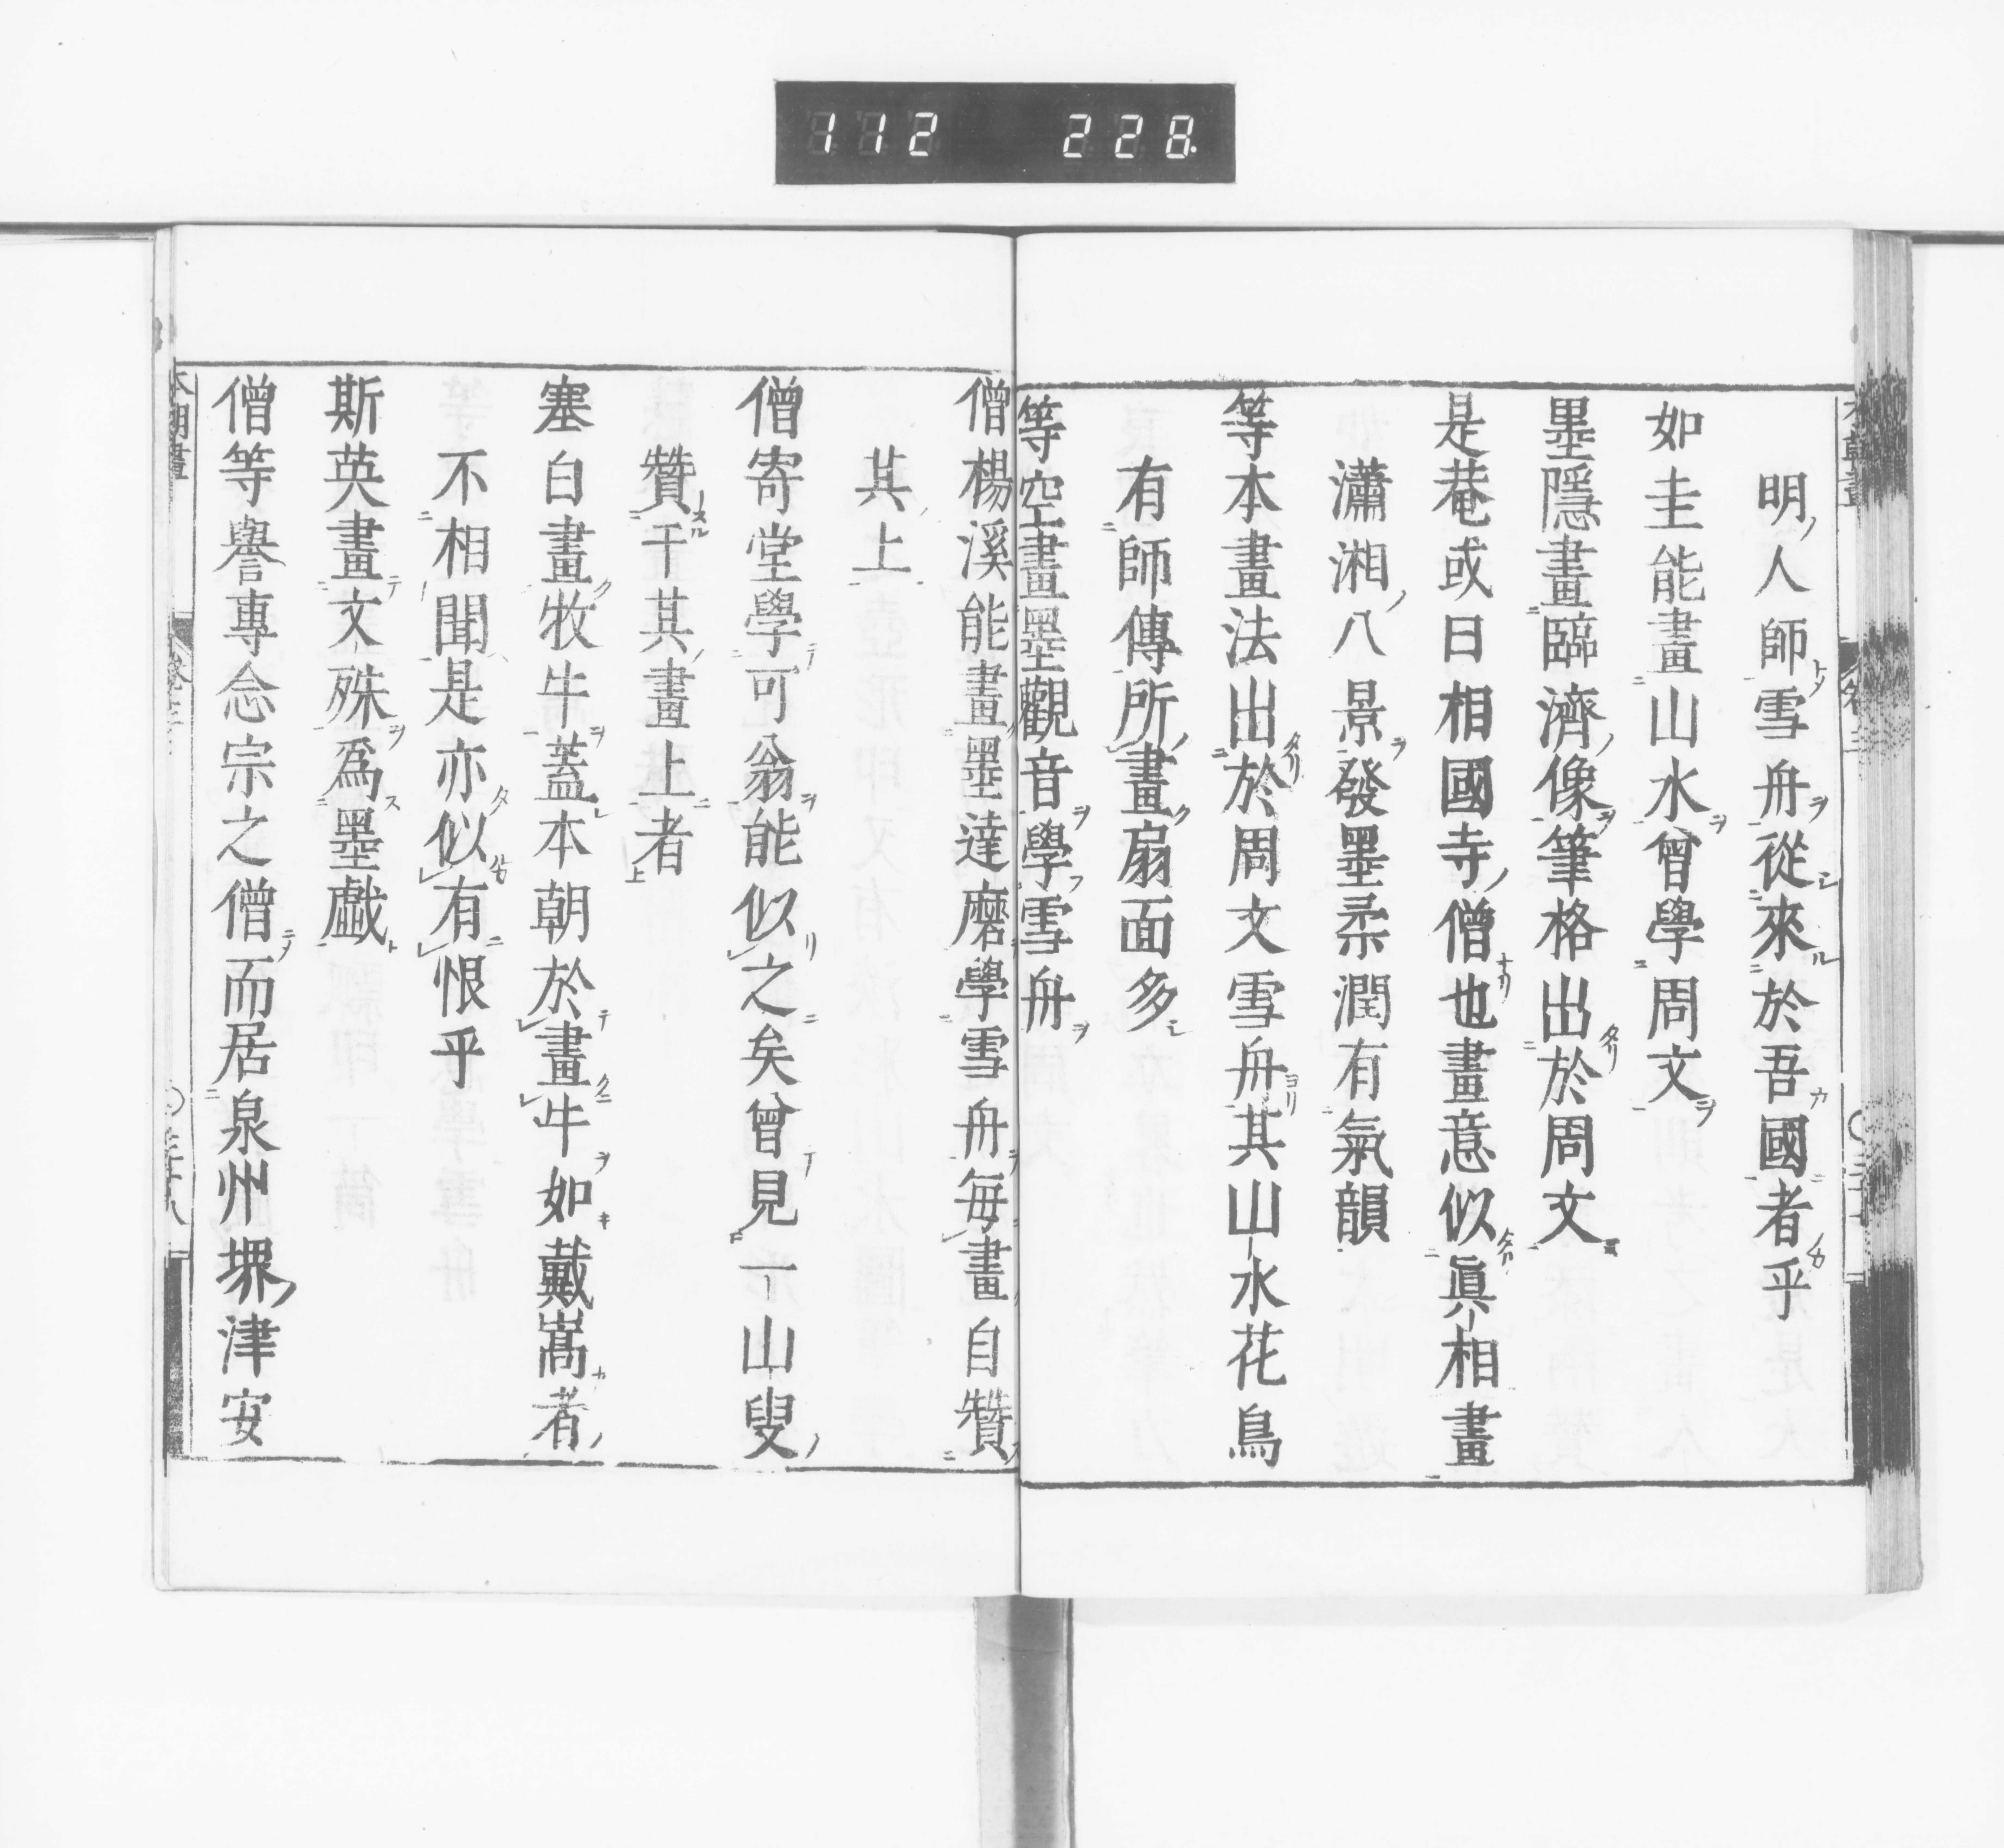 112 228.
明人師雪舟從來於吾國者乎
如圭能畫山水曾學周文
墨隱畫臨濟像筆格出於周文
是菴或曰相國寺僧也畫意似眞相畫
瀟湘八景發墨柔潤有氣韻
等本畫法出於周文雪舟其山水花鳥
有師傳所畫扇面多
等空畫墨觀音學雪舟
僧楊溪能畫墨達磨學雪舟每畫自贊
其上
僧寄堂學可翁能似之矣曾見一山叟
贊于其畫上者
塞白畫牧牛蓋本朝於畫牛如戴嵩者
不相聞是亦似有恨乎
斯英畫文殊爲墨戲
僧等譽專念宗之僧而居泉州堺津安